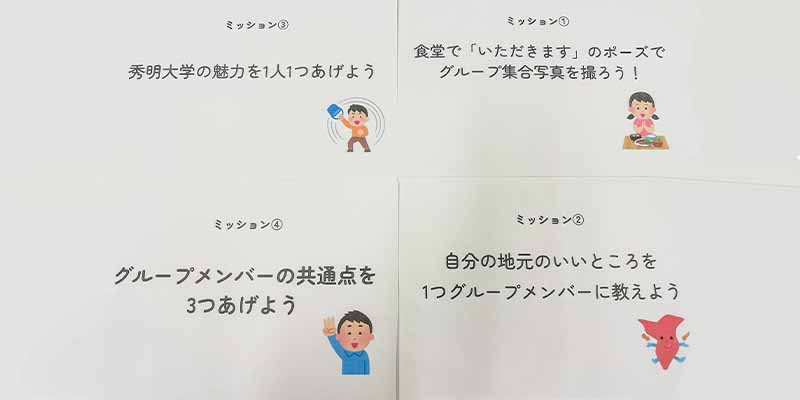 ミッション③
秀明大学の魅力を1人1つあげよう
ミッション①
食堂で「いただきます」のポーズで
グループ集合写真を撮ろう！
ミッション④
グループメンバーの共通点を
3つあげよう
ミッション②
自分の地元のいいところを
1つグループメンバーに教えよう